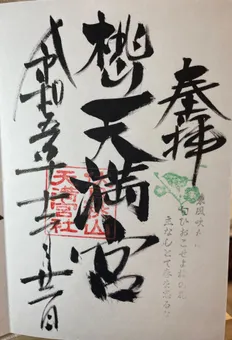 奉拝
東風吹かば
匂ひおこせよ梅の花
主なしとて春を忘るな
天満宮
天満宮社
令和五年十二月廿日